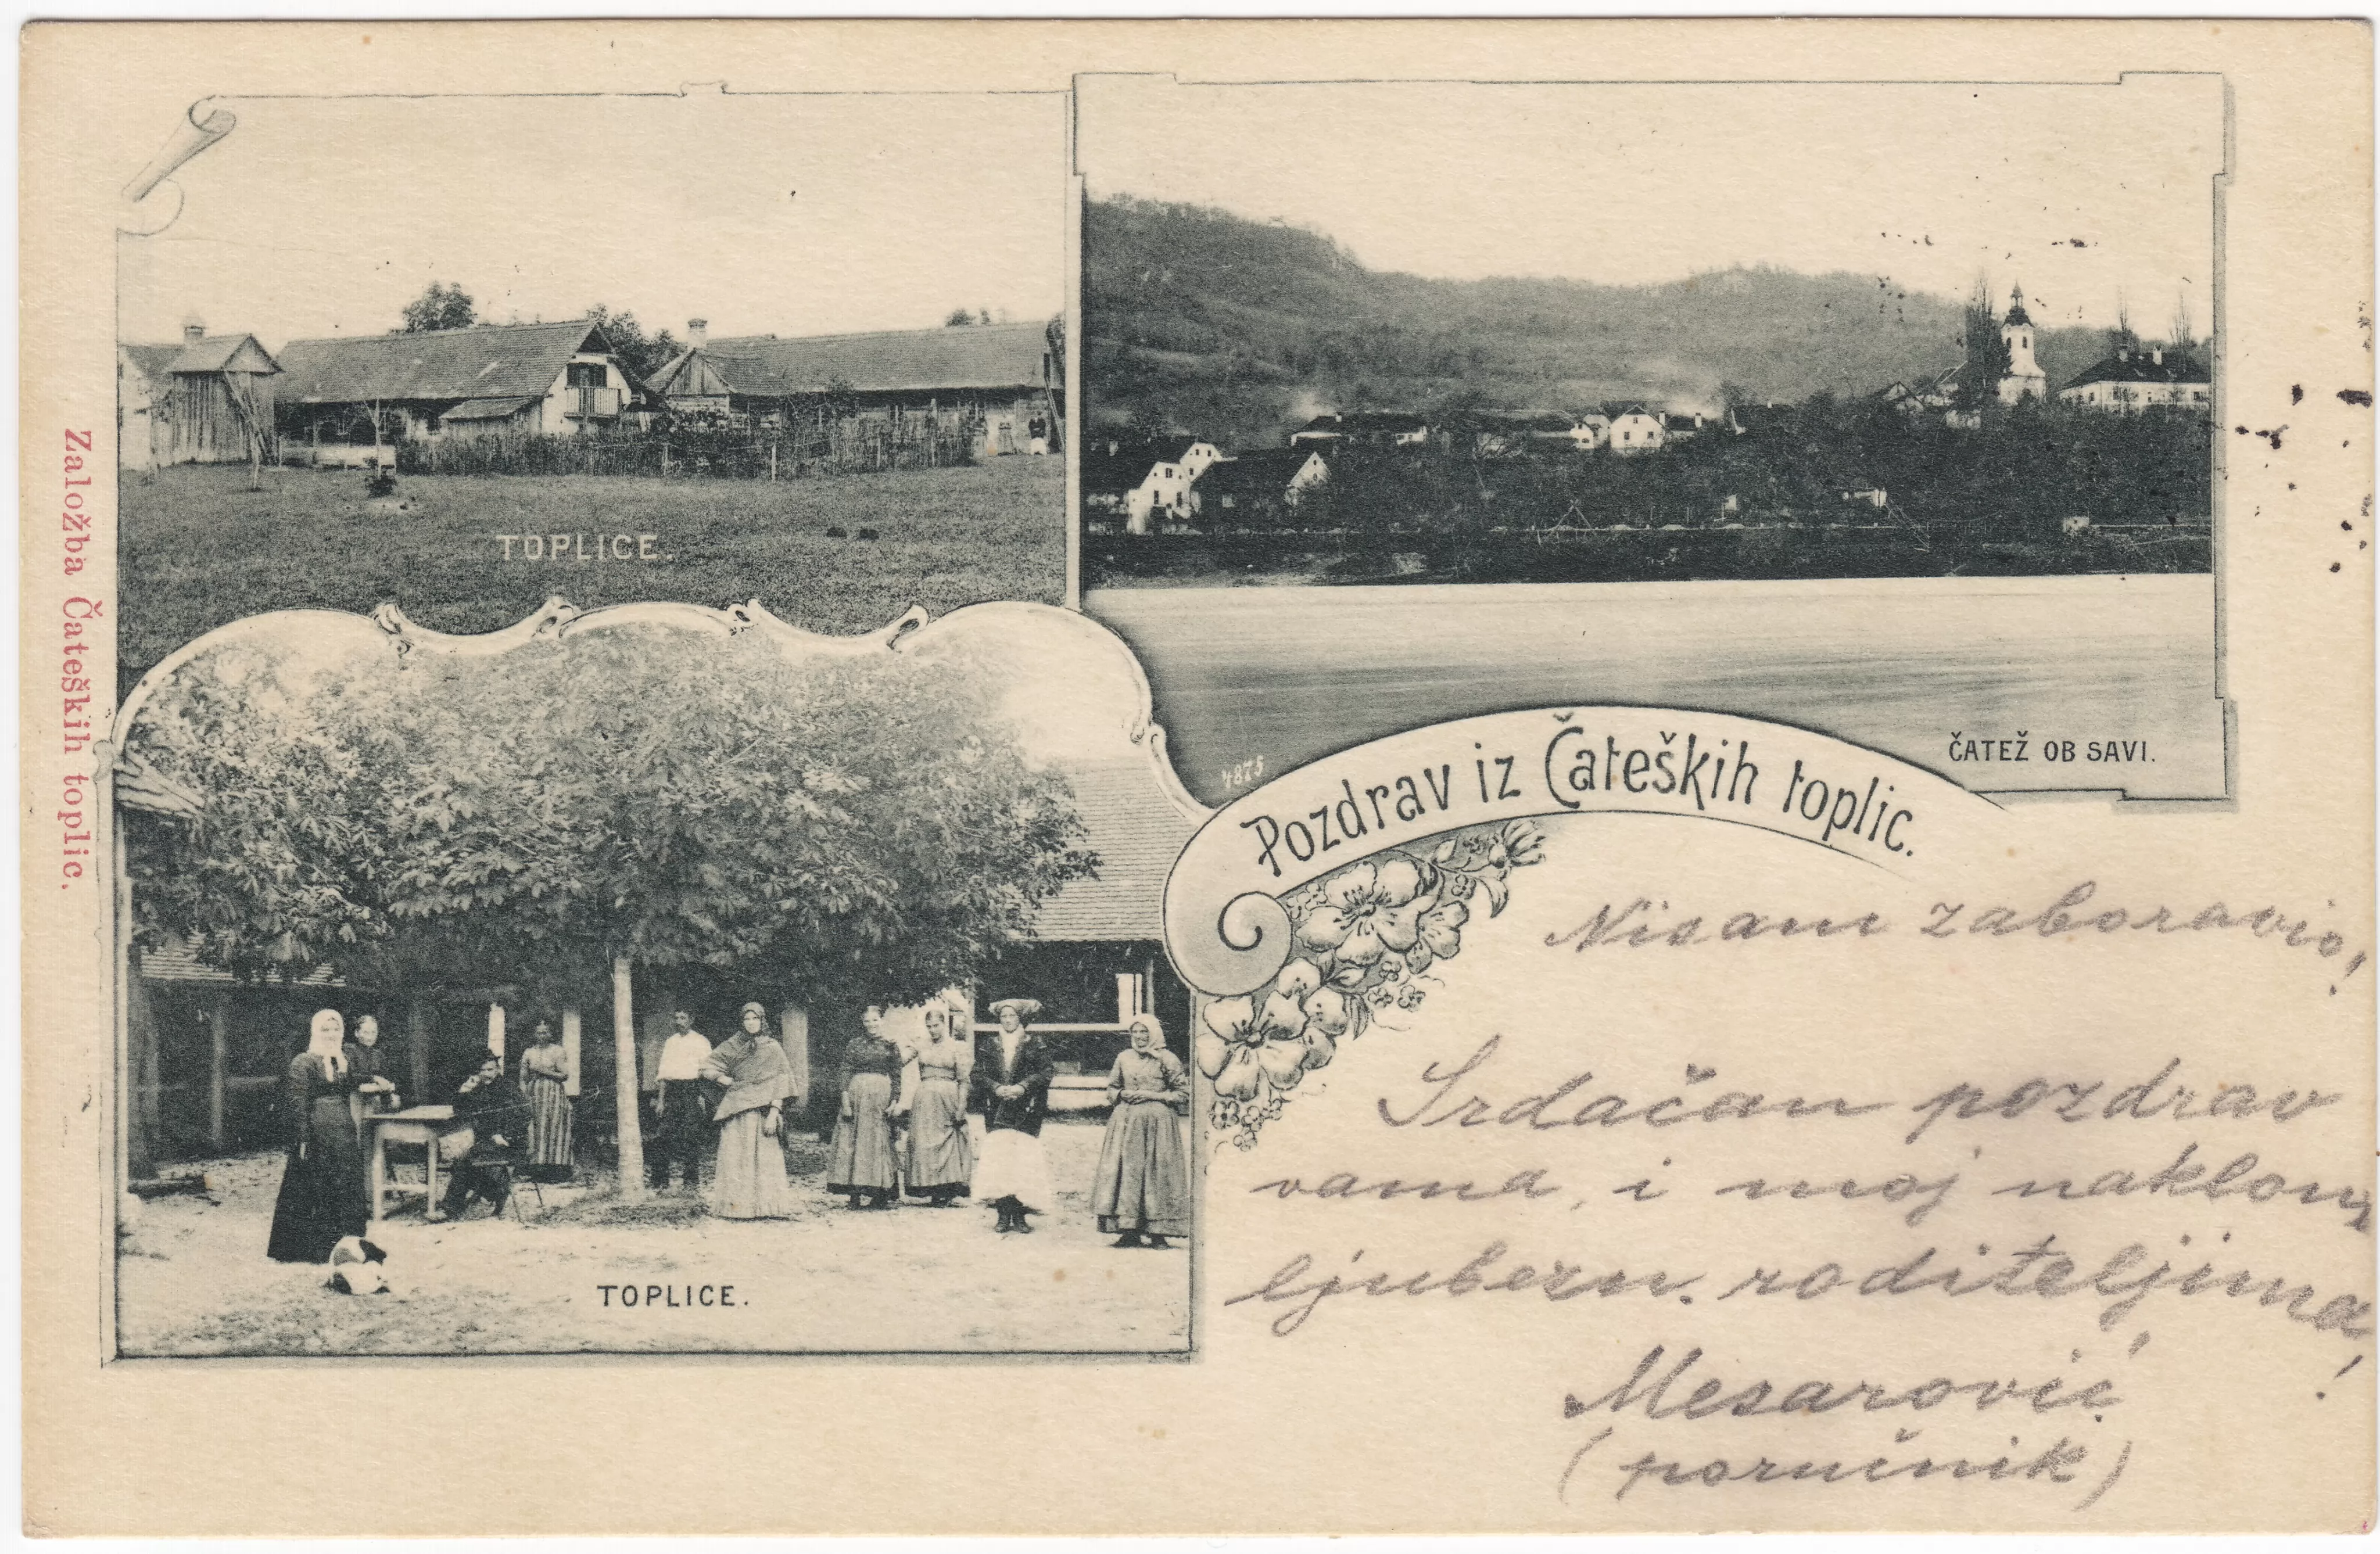 Založba Čateških toplic.
TOPLICE.
ČATEŽ OB SAVI.
4875
Pozdrav iz Čateških toplic.
TOPLICE.
Nisam zaboravio!
Srdačan pozdrav
vama, i moj naklon
ljubezn. roditeljima!
Mesarović
(poručnik)